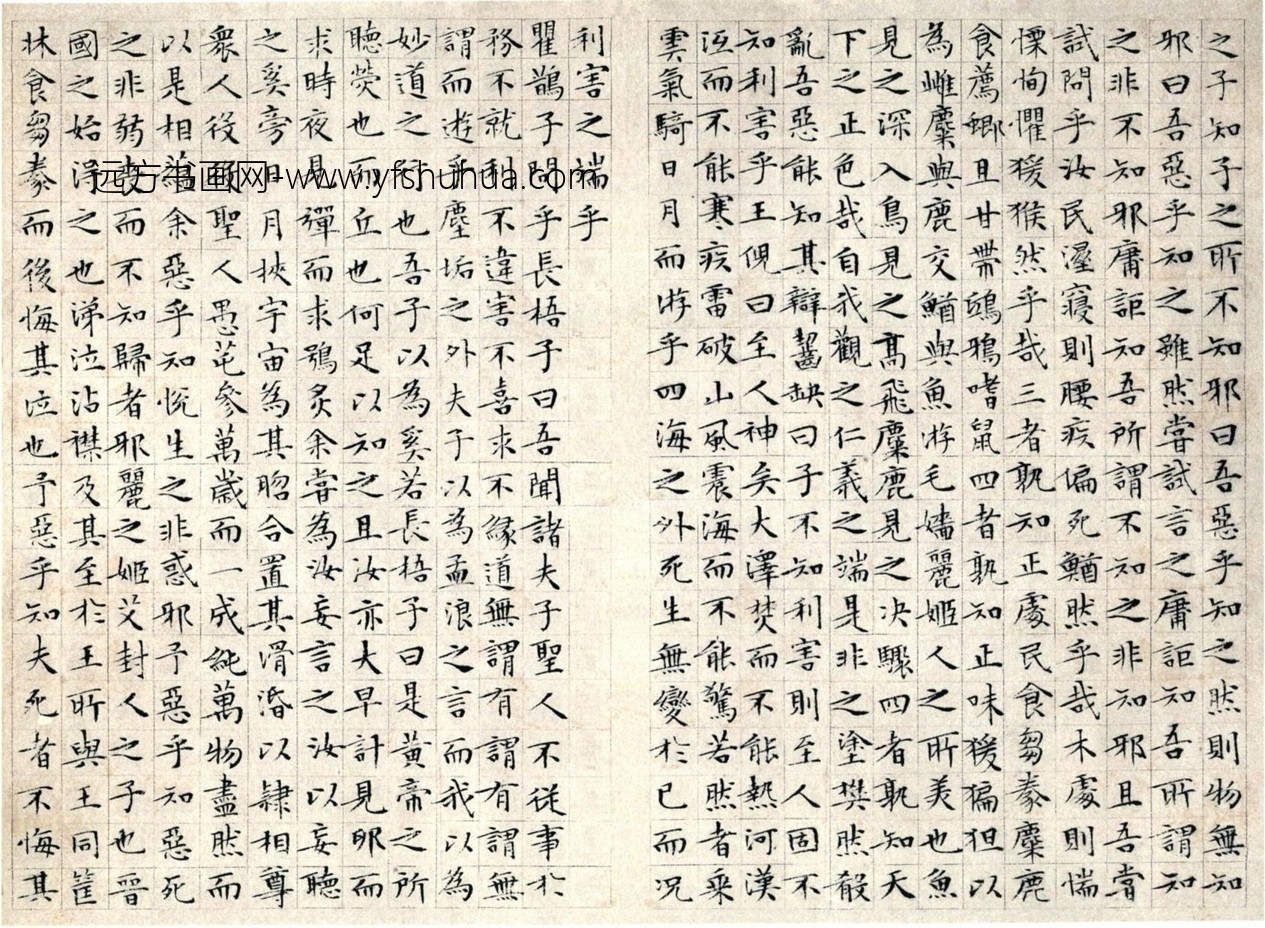 之子知子之所不知邪曰吾惡乎知之然則物無知
邪曰吾惡乎知之雖然嘗試言之庸詎知吾所謂知
之非不知邪庸詎知吾所謂不知之非知邪且吾嘗
試問乎汝民溼寢則腰疾偏死鰌然乎哉木處則惴
慄恂懼猨猴然乎哉三者孰知正處民食芻豢麋鹿
食薦蝍且甘帶鴟鴉嗜鼠四者孰知正味猨猵狙以
為雌麋與鹿交鰌與魚游毛嬙麗姬人之所美也魚
見之深入鳥見之高飛麋鹿見之决驟四者孰知天
下之正色哉自我觀之仁義之端是非之塗樊然殽
亂吾惡能知其辯齧缺曰子不知利害則至人固不
知利害乎王倪曰至人神矣大澤焚而不能熱河漢
沍而不能寒疾雷破山風震海而不能驚若然者乘
雲氣騎日月而游乎四海之外死生無變於已而况
利害之端乎
瞿鵲子問乎長梧子曰吾聞諸夫子聖人不從事於
務不就利不違害不喜求不緣道無謂有謂有謂無
謂而遊乎塵垢之外夫子以為孟浪之言而我以為
妙道之行也吾子以為奚若長梧子曰是黃帝之所
聽熒也而丘也何足以知之且汝亦大早計見卵而
求時夜見彈而求鴞炙余嘗為汝妄言之汝以妄聽
之奚旁日月挾宇宙為其脗合置其滑涽以隸相尊
衆人役役聖人愚芚參萬歲而一成純萬物盡然而
以是相蘊余惡乎知悅生之非惑邪予惡乎知惡死
之非弱喪而不知歸者邪麗之姬艾封人之子也晉
國之始得之也涕泣沾襟及其至於王所與王同筐
牀食芻豢而後悔其泣也予惡乎知夫死者不悔其
远方书画网-www.yfshuhua.com